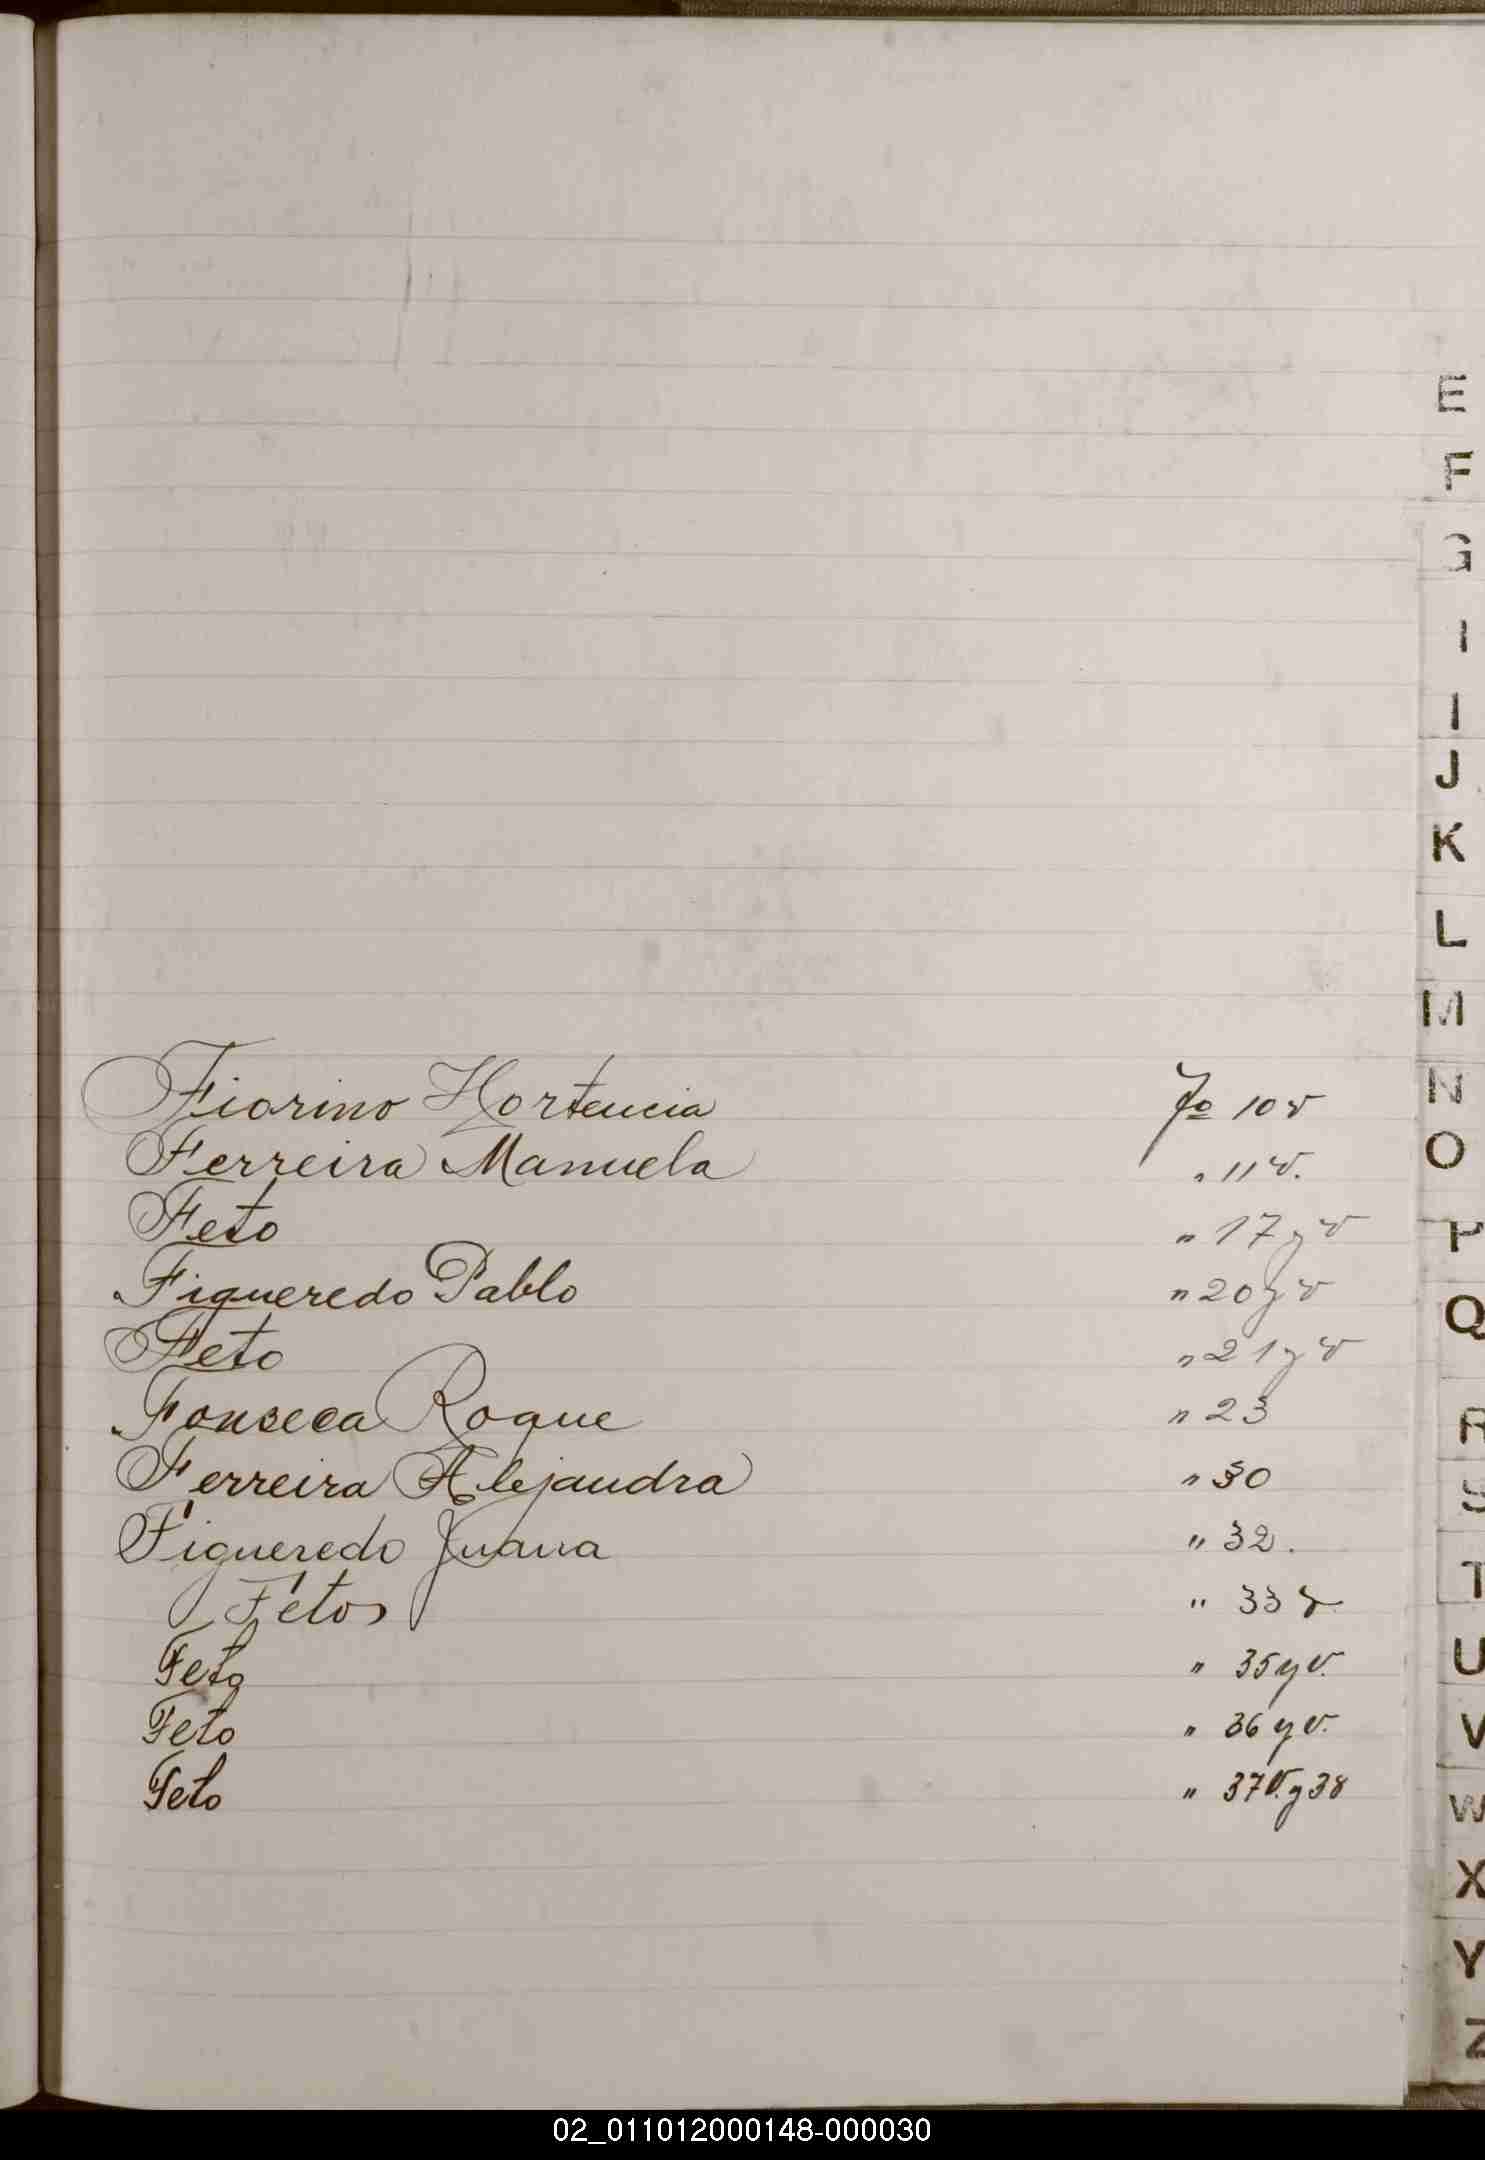 Fiorino Hortencia Fo 10 v
Ferreira Manuela " 11 v.
Feto " 17 y v
Figueredo Pablo " 20 y v
Feto " 21 y v
Fonseca Roque " 23
Ferreira Alejandra " 30
Figueredo Juana " 32.
Fetos " 33 v
Feto " 35 y v.
Feto " 36 y v.
Feto " 37 v. y 38
E
F
G
I
I
J
K
L
M
N
O
P
Q
R
S
T
U
V
W
X
Y
Z
02_011012000148-000030